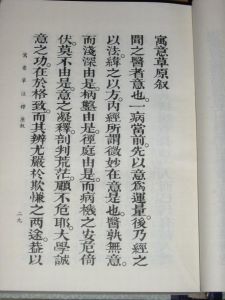 寓意草原叙
聞之醫者意也。一病當前。先以意爲運量。後乃經之
以法。緯之以方。內經所謂微妙在意是也。醫孰無意。
而淺深由是。枘鑿由是。徑庭由是。而病機之安危倚
伏。莫不由是。意之凝釋。剖判荒茫。顧不危耶。大學誠
意之功。在於格致。而其辨尤嚴於欺慊之兩途。蓋以
寓意草注釋 原叙
二九